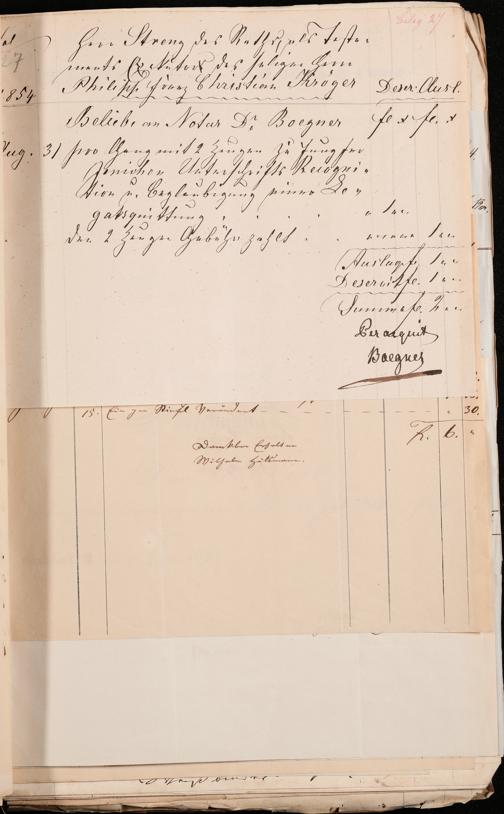 Beleg 27
27
Herr Streng des Raths, als Testa-
ments Executor des seligen Herrn
Philipp Franz Christian Kröger Deser. Ausl.
1854
Beliebe an Notar Dr. Boegner fl x fl. x
Aug. 31 pro Gang mit 2 Zeugen zu Jungfer
Unterschrifts Recogni-
tion u. Beglaubigung einer Le-
gatsquittung
den 2 Zeugen Gebühr zahlt
Auslag fl. 1
Deservit fl. 1
Summe fl. 2
Per acquit
Boegner
15. Verändert 30.
fl. 6.
Dankbar Erhalten
Wilhelm